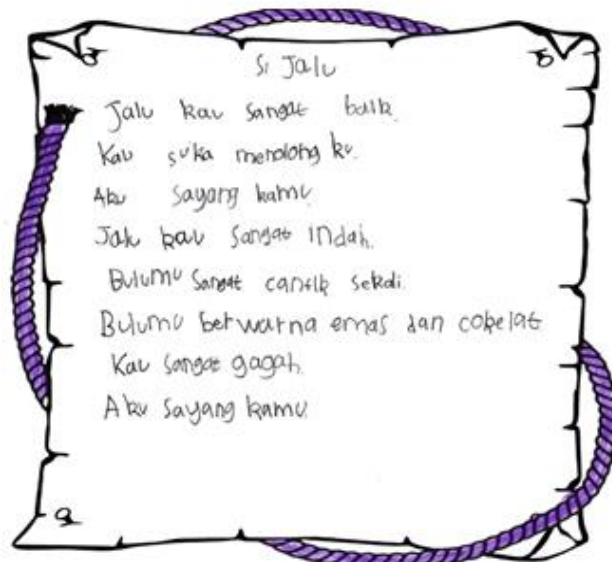 Si Jalu
Jalu kau sangat baik.
Kau suka menolong ku.
Aku sayang kamu.
Jalu kau sangat indah.
Bulumu sangat cantik sekali.
Bulumu berwarna emas dan cokelat
Kau sangat gagah.
Aku sayang kamu.